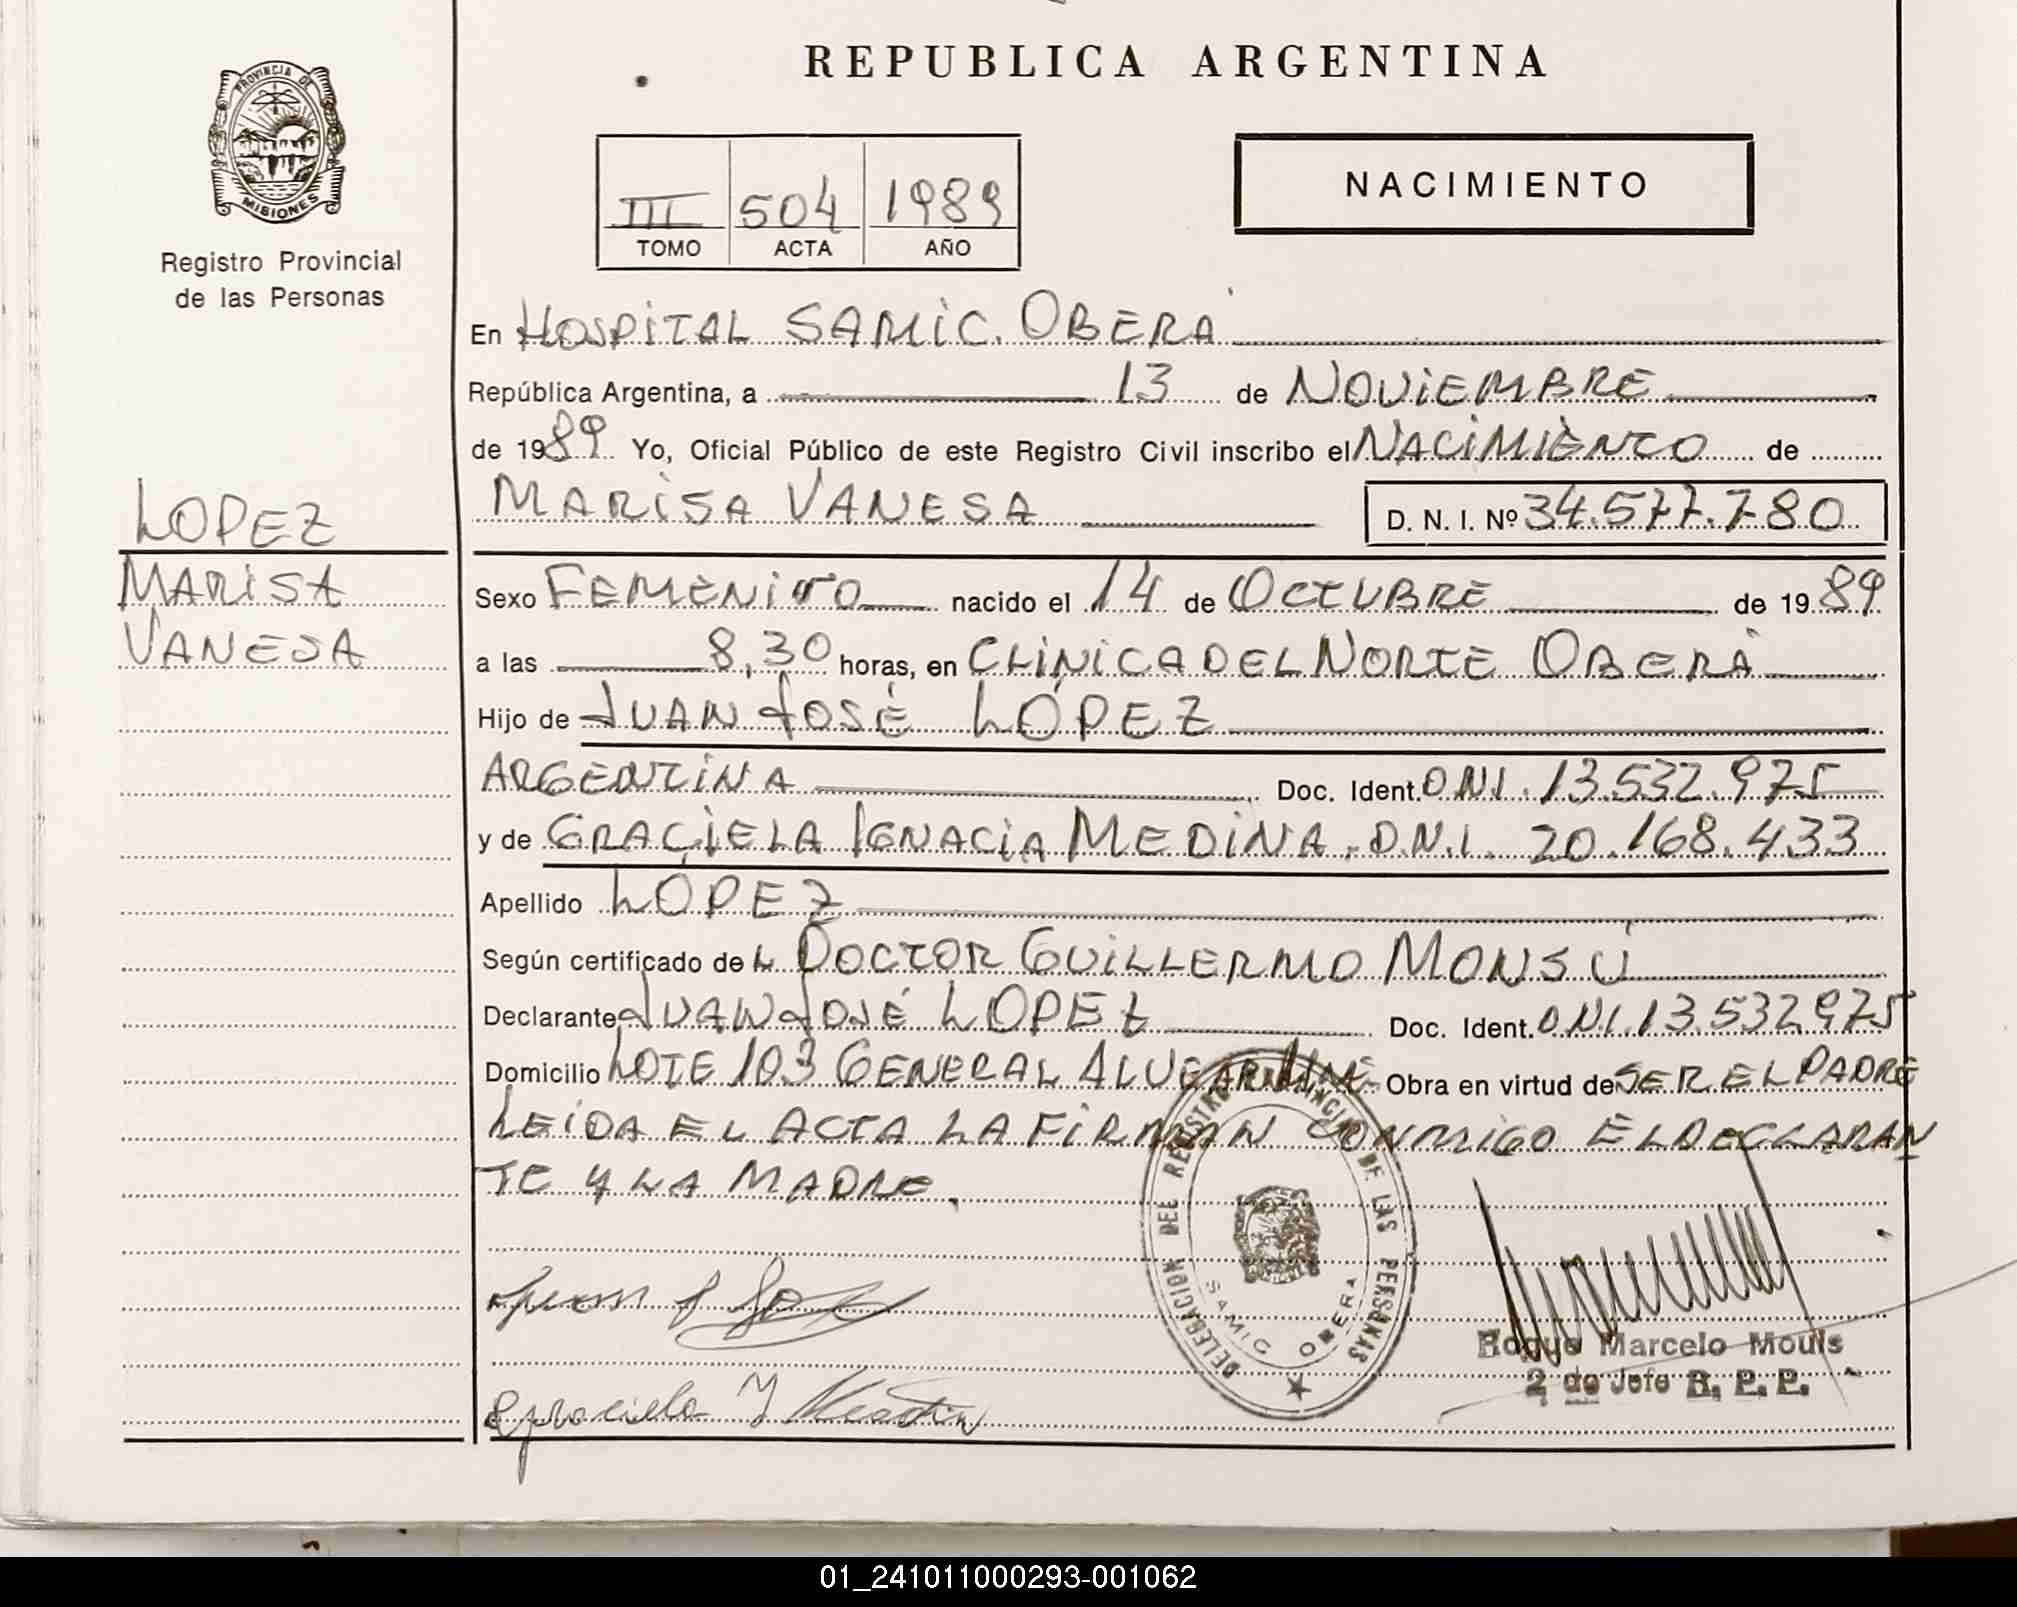 REPUBLICA ARGENTINA
PROVINCIA DE
MISIONES
Registro Provincial
de las Personas
III 504 1989
TOMO ACTA AÑO
NACIMIENTO
En HOSPITAL SAMIC. OBERÁ
República Argentina, a 13 de NOVIEMBRE
de 1989 Yo, Oficial Público de este Registro Civil inscribo el NACIMIENTO de
MARISA VANESA D. N. I. Nº 34.577.780
LOPEZ
MARISA
VANESA
Sexo FEMENINO nacido el 14 de OCTUBRE de 1989
a las 8,30 horas, en CLINICA DEL NORTE OBERÁ
Hijo de JUAN JOSÉ LÓPEZ
ARGENTINA Doc. Ident. D.N.I. 13.532.975
y de GRACIELA IGNACIA MEDINA. D.N.I. 20.168.433
Apellido LÓPEZ
Según certificado del DOCTOR GUILLERMO MONSÚ
Declarante JUAN JOSÉ LOPEZ Doc. Ident. D.N.I. 13.532.975
Domicilio LOTE 103 GENERAL ALVEAR Obra en virtud de SER EL PADRE
LEIDA EL ACTA LA FIRMAN CONMIGO EL DECLARAN
TE Y LA MADRE.
DELEGACION DEL REGISTRO PROVINCIAL DE LAS PERSONAS
SAMIC OBERA
Roque Marcelo Mouls
2 do Jefe R. P. P.
01_241011000293-001062